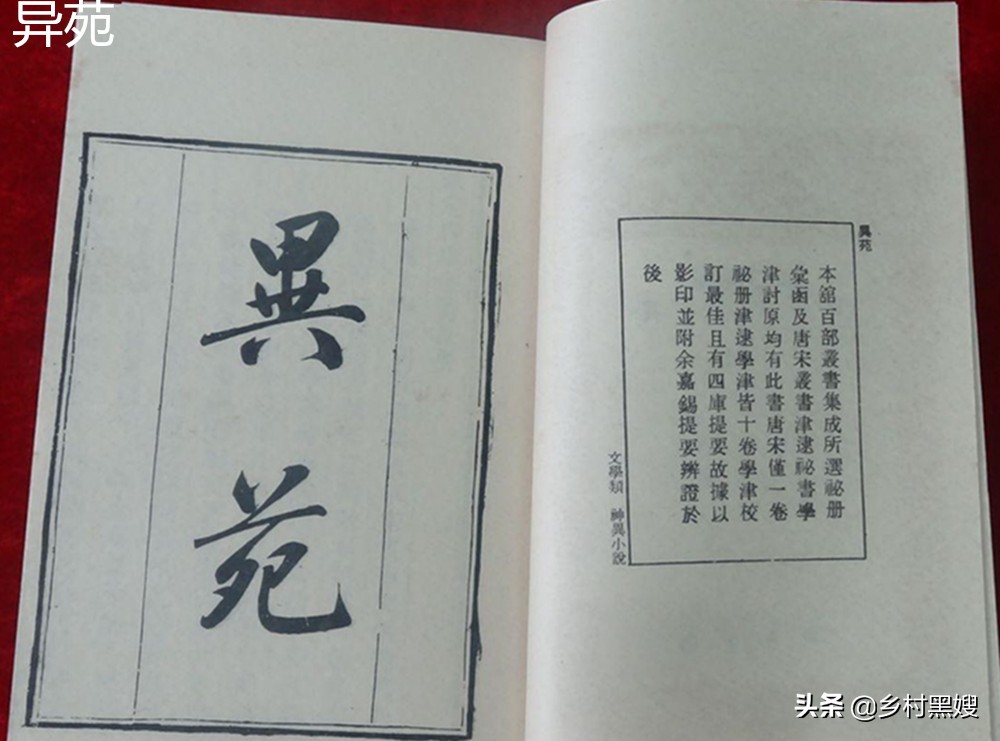 异苑
異苑
異苑
本舘百部叢書集成所選祕册
彙函及唐宋叢書津逮祕書學
津討原均有此書唐宋僅一卷
祕册津逮學津皆十卷學津校
訂最佳且有四庫提要故據以
影印並附余嘉錫提要辨證於
後
文學類 神異小說
头条 @乡村黑嫂